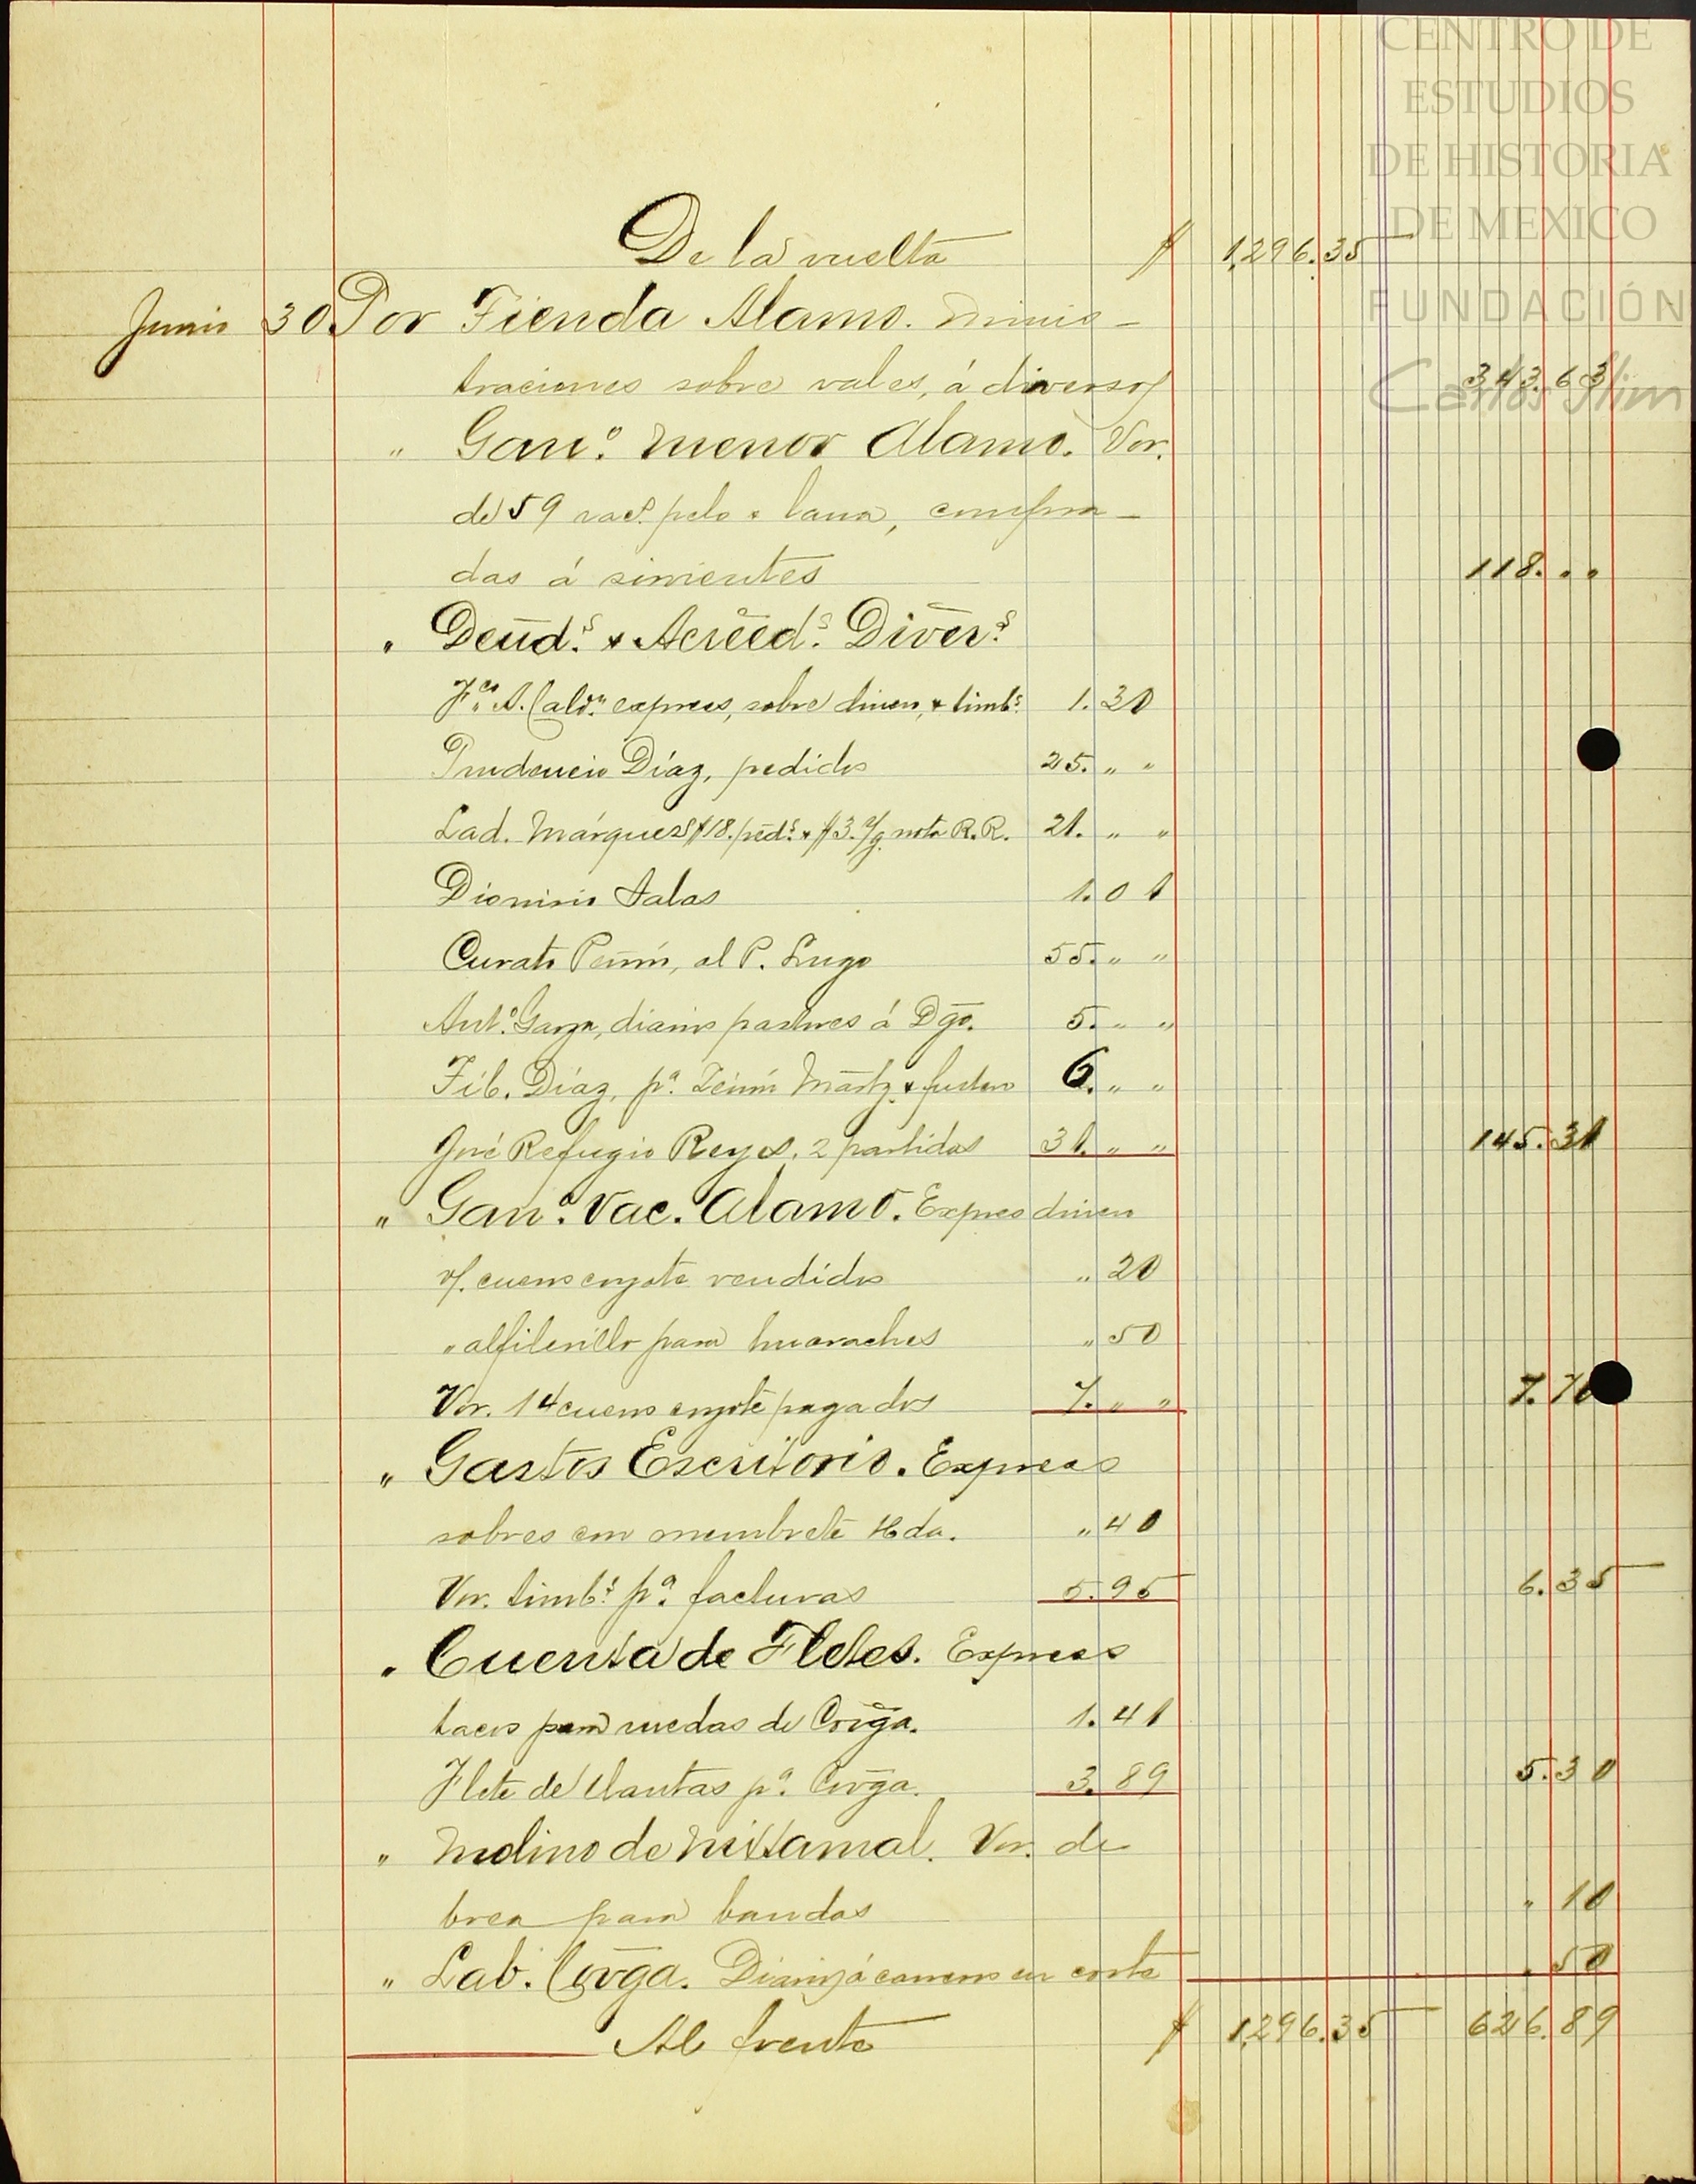 CENTRO DE
ESTUDIOS
DE HISTORIA
DE MEXICO
FUNDACIÓN
Carlos Slim
De la vuelta $ 1,296.35
Junio 30 Por Tienda Alamo. Minis-
traciones sobre vales, á diversos 343.63
" Gano. menor Alamo. Vor.
de 59 pelo & lana, compra-
das á sirvientes 118. " "
" Deuds. & Acreeds. Divers.
Fco. A. express, sobre dinero, & timbs. 1.30
Prudencio Díaz, pedidos 25. " "
Lad. Márquez $18. peds. & $3. v/g nota R. R. 21. " "
Dionisio Salas 1.01
Curato Peñón, al P. Lugo 55. " "
Anto. Garza, diarios pastores á Dgo. 5. " "
Tib. Díaz, pa. Mártz. & 6. " "
José Refugio Reyes, 2 partidas 31. " " 145.31
" Gano. Vac. Alamo. Expres dinero
v/. cueros coyote vendidos " 20
" alfilerillo para huaraches " 50
Vor. 14 cueros coyote pagados 7. " " 7.70
" Gastos Escritorio. Express
sobres con membrete Hda. " 40
Vor. timbs. pa. facturas 5.95 6.35
" Cuenta de Fletes. Express
tacos para ruedas de Covga. 1.41
Flete de llantas pa. Covga. 3.89 5.30
" Molino de Nixtamal. Vor. de
brea para bandas " 10
" Lab. Covga. Diarios á carreros en corte " 50
Al frente $ 1,296.35 626.89